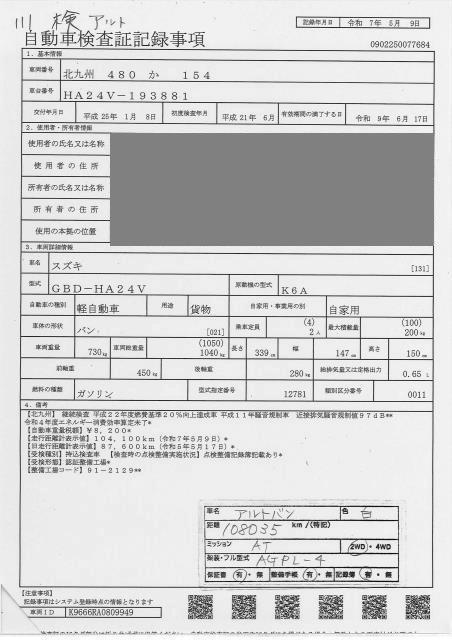 川 検 アルト
記録年月日 令和 7年 5月 9日
自動車検査証記録事項
0902250077684
1. 基本情報
車両番号 北九州 480 か 154
車台番号 HA24V-193881
交付年月日 平成 25年 1月 8日 初度検査年月 平成 21年 6月 有効期間の満了する日 令和 9年 6月 17日
2. 使用者・所有者情報
使用者の氏名又は名称
使用者の住所
所有者の氏名又は名称
所有者の住所
使用の本拠の位置
3. 車両詳細情報
車名 スズキ [131]
型式 GBD-HA24V 原動機の型式 K6A
自動車の種別 軽自動車 用途 貨物 自家用・事業用の別 自家用
車体の形状 バン [021] 乗車定員 (4) 2人 最大積載量 (100) 200kg
車両重量 730kg 車両総重量 (1050) 1040kg 長さ 339cm 幅 147cm 高さ 150cm
前軸重 450kg 後軸重 280kg 総排気量又は定格出力 0.65L
燃料の種類 ガソリン 型式指定番号 12781 類別区分番号 0011
4. 備考
【北九州】 継続検査 平成22年度燃費基準20%向上達成車 平成11年騒音規制車 近接排気騒音規制値97dB**
令和4年度エネルギー消費効率算定未了*
【自動車重量税額】￥8,200*
【走行距離計表示値】104,100km（令和7年5月9日）*
【旧走行距離計表示値】87,600km（令和5年5月17日）*
【受検種別】持込検査車 【検査時の点検整備実施状況】点検整備記録簿記載あり*
【受検形態】認証整備工場*
【整備工場コード】91-2129**
車名 アルトバン 色 白
距離 108035 km/(特記)
ミッション AT 2WD・4WD
架装・フル型式 AGPL-4
保証書 有・無 整備手帳 有・無 記録簿 有・無
【注意事項】
記録事項はシステム登録時点の情報となります
車両ID K9666RA0809949